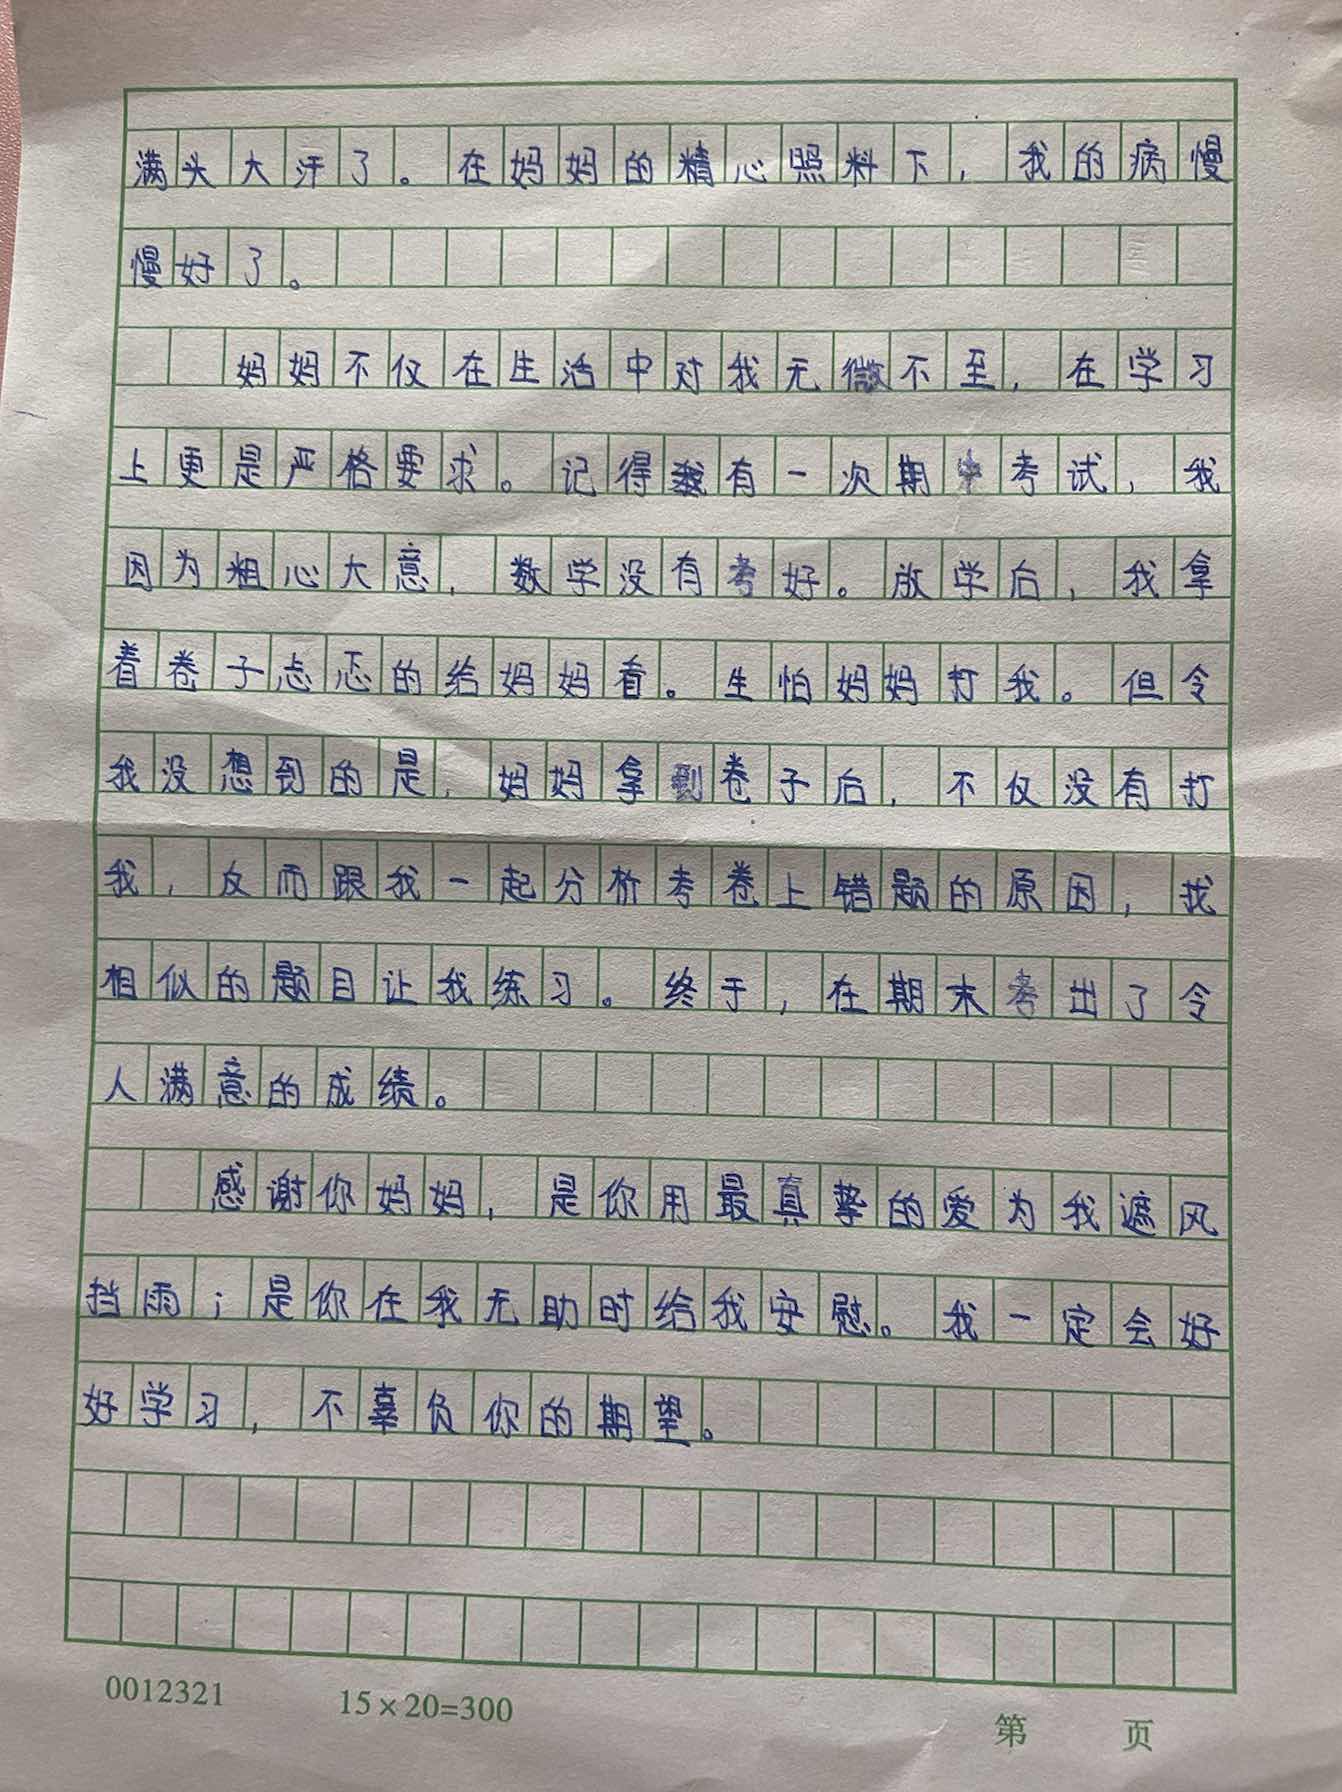 满头大汗了。在妈妈的精心照料下，我的病慢
慢好了。
妈妈不仅在生活中对我无微不至，在学习
上更是严格要求。记得我有一次期中考试，我
因为粗心大意，数学没有考好。放学后，我拿
着卷子忐忑的给妈妈看。生怕妈妈打我。但令
我没想到的是，妈妈拿到卷子后，不仅没有打
我，反而跟我一起分析考卷上错题的原因，找
相似的题目让我练习。终于，在期末考出了令
人满意的成绩。
感谢你妈妈，是你用最真挚的爱为我遮风
挡雨；是你在我无助时给我安慰。我一定会好
好学习，不辜负你的期望。
0012321 15×20=300
第 页